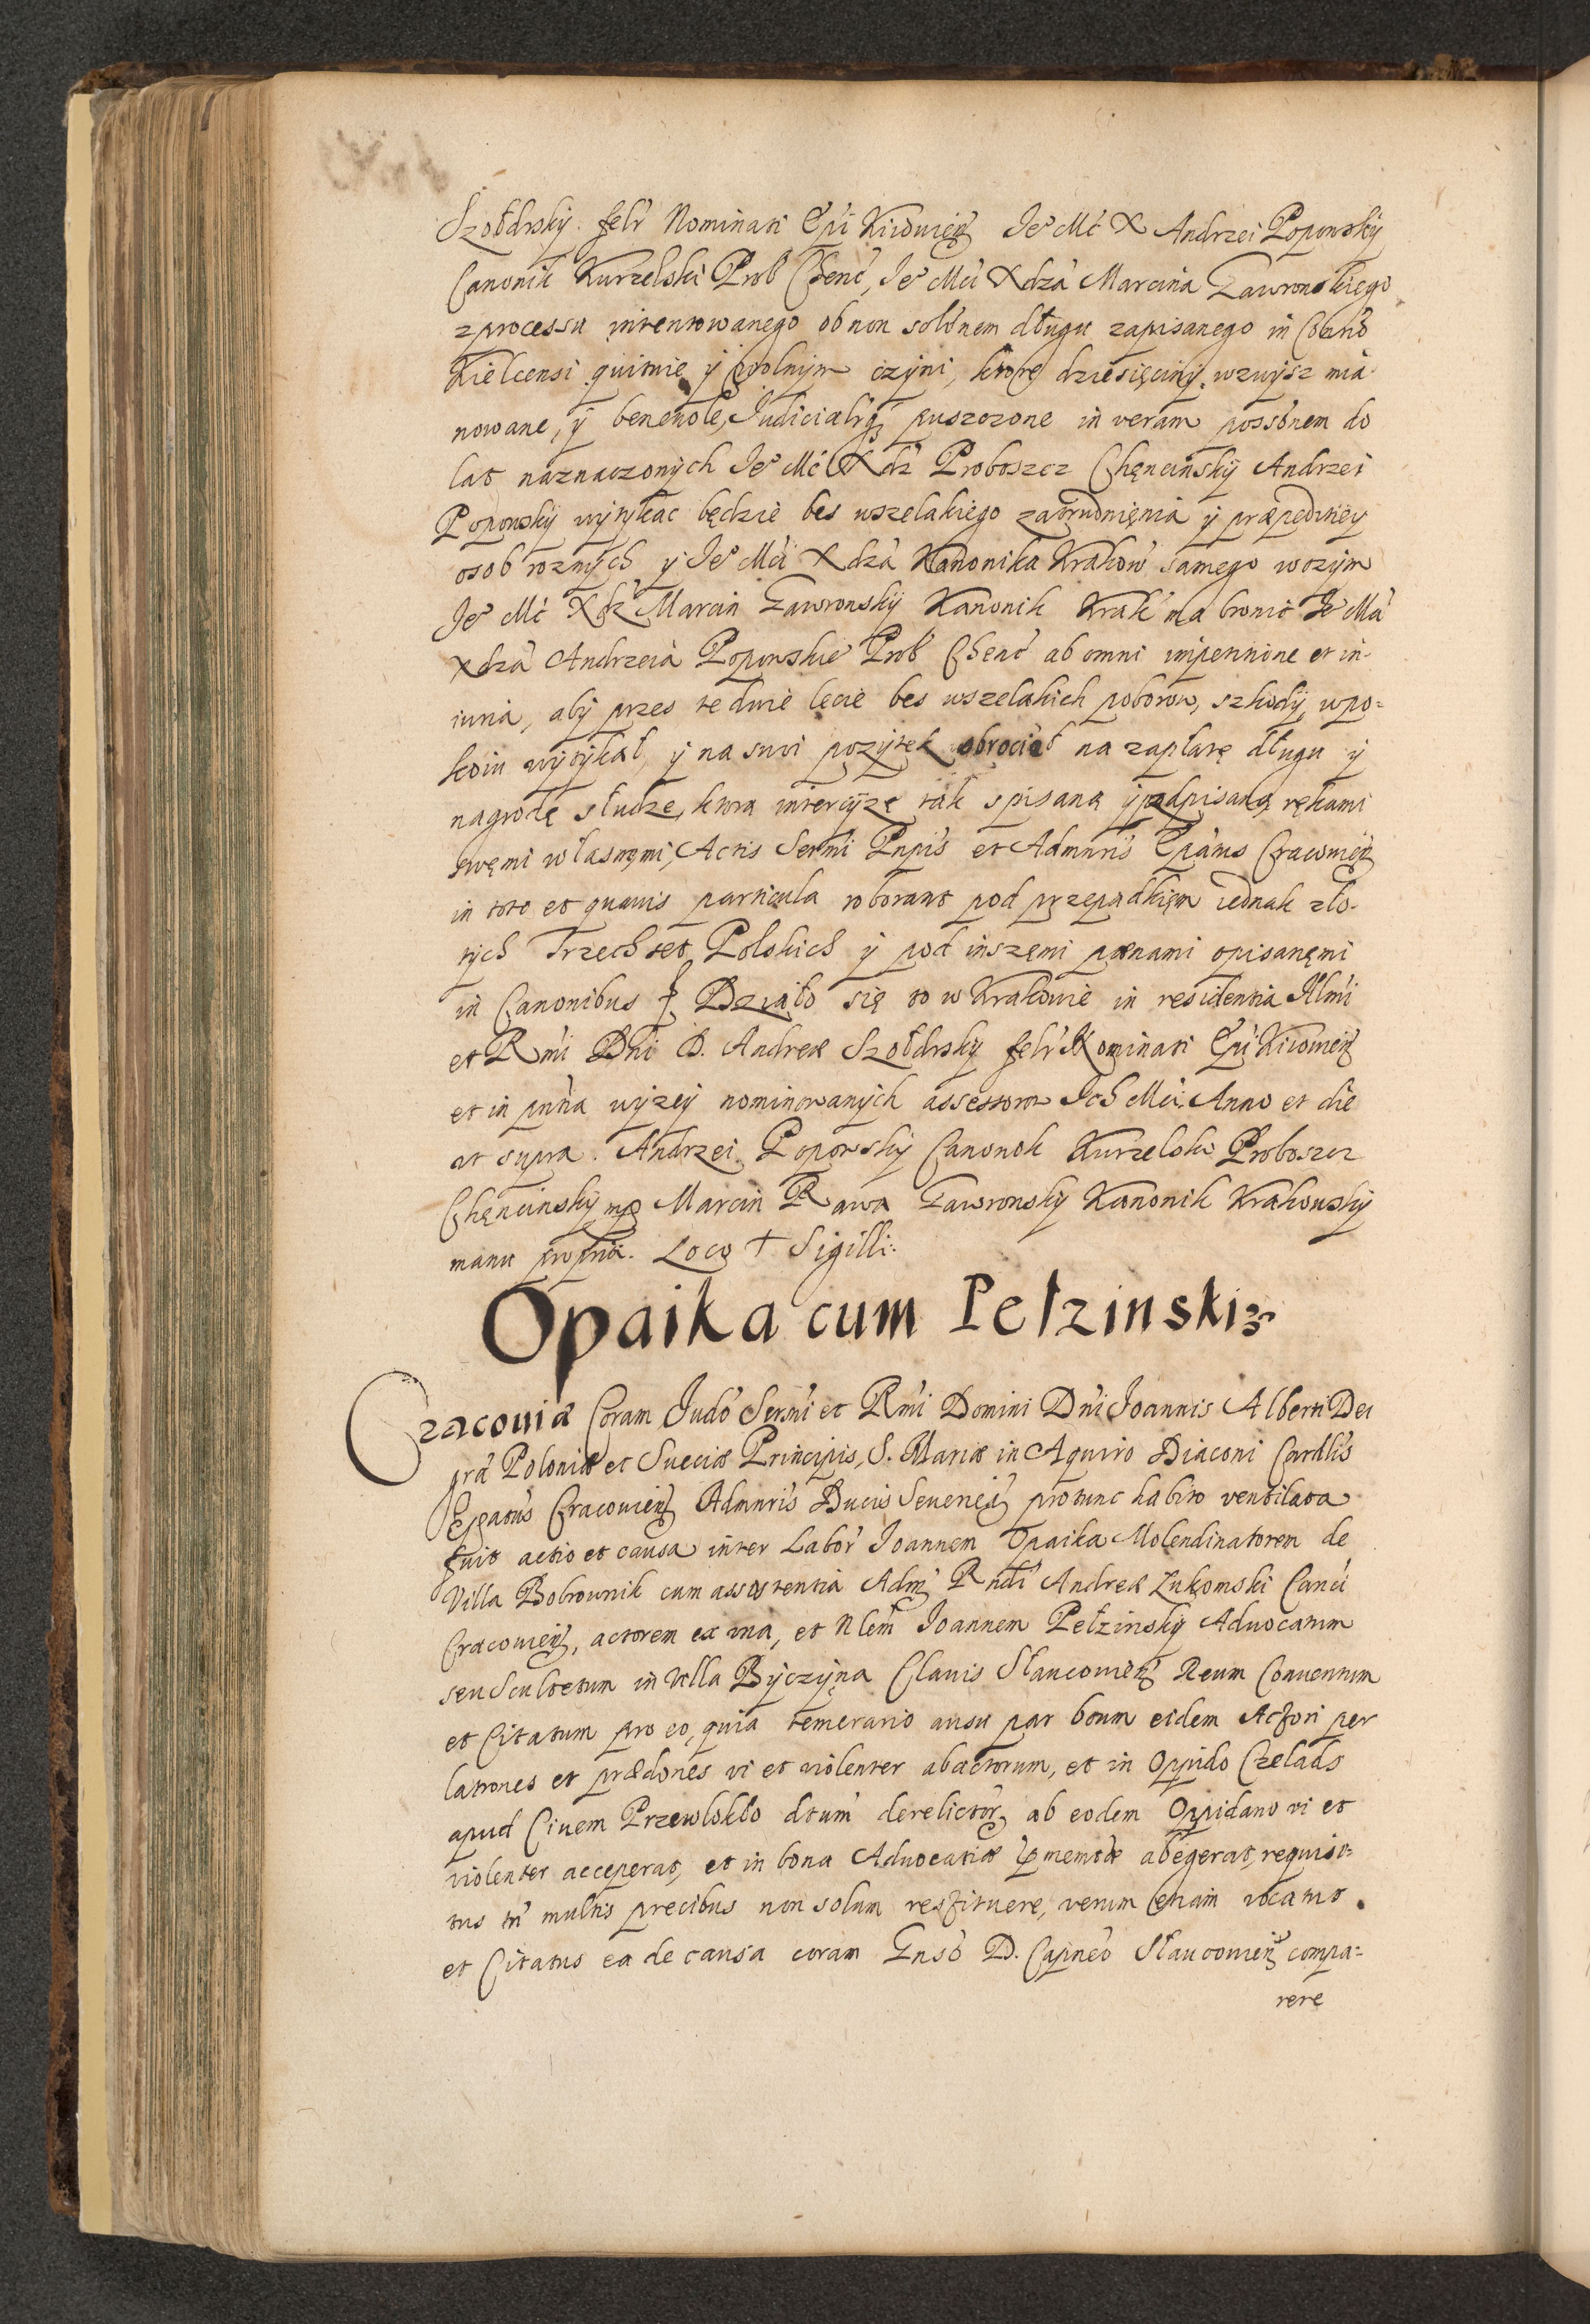 Szołdrsky felr Nominati Epi Kiiowien Je° Mć X Andrzei Popowsky
Canonik Kurzelski Prob Chenć, Je° Mći Xdza Marcina Gawronskiego
z processu intentowanego ob non solonem długu zapisanego in Conno
Kielcensi quituie ÿ wolnym czyni, ktore dziesięciny wzwysz mia
nowane, ÿ beneuole, Judicialrq puszczone in veram possonem do
lat naznaczonych Je° Mć Xdz Proboszcz Chęncinsky Andrzei
Popowsky wytykac będzie bes wszelakiego zatrudnięnia ÿ præpeditiey
osob roznych ÿ Je° Mći Xdza Kanonika Krakow samego w czym
Je° Mć Xdz Marcin Gawronsky Kanonik Krak ma bronić Je° Mći
Xdza Andrzeia Popowskie° Prob Chenć ab omni impetitione et in-
iuria, aby przes te dwie lecie bes wszelakich poborow, szkody, w po=
koiu wytykał, ÿ na swoi pozytek obrociał na zapłatę długu ÿ
nagrodę słudze, ktora intercyzę tak spisaną ÿ podpisaną rękami
swęmi własnęmi, Actis Sermi Pnpis et Admnris Epatus Cracouien
in toto et quauis particula roborant pod przepadkięm iednak zło-
tych Trzech set Polskich ÿ pod inszęmi pænami opisanęmi
in Canonibus Działo się to w Krakowie in residentia Illmi
et Rmi Dni D. Andreæ Szołdrsky felr Nominati Epi Kiiowien
et in pnna wyzey nominowanych assessorow Ich Mći. Anno et die
ut supra. Andrzei Popowsky Canonik Kurzelski Proboszcz
Chęncinsky mp Marcin Rawa Gawronsky Kanonik Krakowsky
manu propria. Loco + Sigilli.
Opaika cum Petzinski
Cracouiæ Coram Judo Sermi et Rmi Domini Dni Joannis Alberti Dei
gra Poloniæ et Sueciæ Principis, S. Mariæ in Aquiro Diaconi Cardlis
Epatus Cracouien Admnris Ducis Seuerieñ protunc habito ventilata
fuit actio et causa inter Labor Joannem Opaika Molendinatorem de
Villa Bobrownik cum assistentia Adm Rndi Andreæ Lukomski Canci
Cracouien, actorem ex vna, et Nlem Joannem Petzinsky Aduocatum
seu Scultetum in Villa Byczyna Clauis Słaucouien Reum Conuentum
et Citatum pro eo, quia temerario ausu par boum eidem Actori per
latrones et prædones vi et violenter abactorum, et in Oppido Czeladz
apud Ciuem Przewlokło dtum derelictor ab eodem Oppidano vi et
violenter acceperat, et in bona Aduocatiæ pmemtæ abegerat, requisi-
tus tn multis precibus non solum restituere, verum etiam vocatus
et Citatus ea de causa coram Gnso D. Capneo Słaucouien compa=
rere